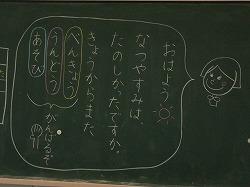 おはよう
なつやすみは、
たのしかったですか。
きょうからまた
べんきょう
うんどう
あそび
がんばるぞ